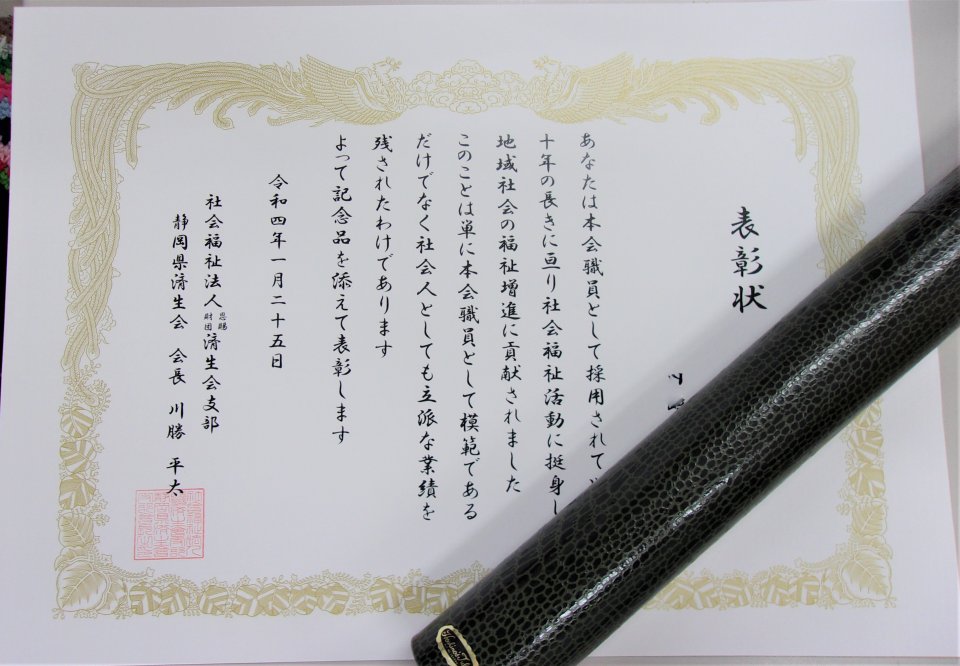 表彰状
あなたは本会職員として採用されて
十年の長きに亘り社会福祉活動に挺身し
地域社会の福祉増進に貢献されました
このことは単に本会職員として模範である
だけでなく社会人としても立派な業績を
残されたわけであります
よって記念品を添えて表彰します
令和四年一月二十五日
社会福祉法人恩賜財団済生会支部
静岡県済生会 会長 川勝 平太